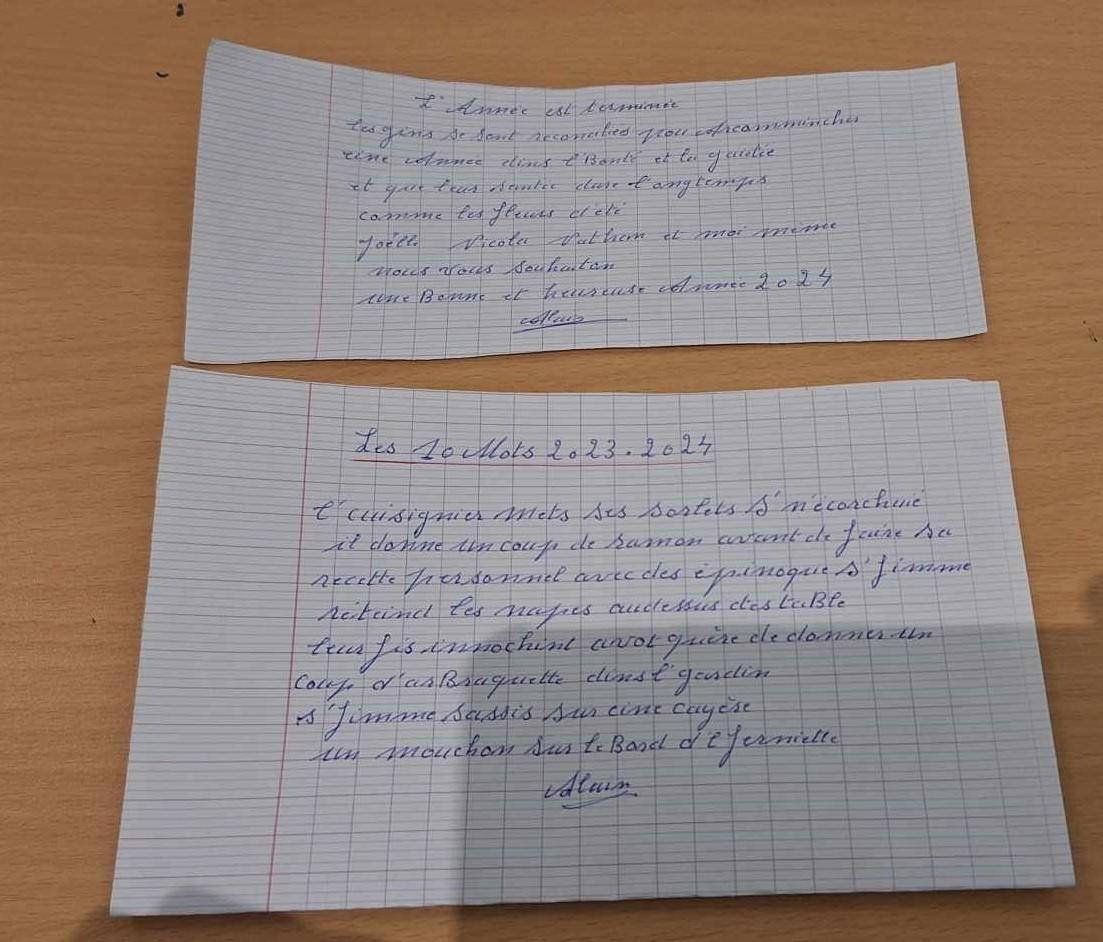 L'Année est terminée
les gins se sont reconaliés pou Arcommincher
eine Année dins l'Bonté et la gaietée
et que leus santée dure l'ongtemps
comme les fleurs d'été
Joëlle Nicola Nathan et moi même
nous vous souhaiton
une Bonne et heureuse Année 2024
Alain
Les 10 Mots 2023.2024
l'cuisignier mets ses sorlets s'n'écorchuié
il donne un coup de ramon avant de faire sa
recette personnel avec des épinoque s'fimme
réteind les napes audessus des taBle
leur fis innochint avot quère de donner un
coup d'arBraquette dins l'gardin
s'fimme sassis sur eine cayèse
un mouchon sur le Bord d'l'fernielle
Alain